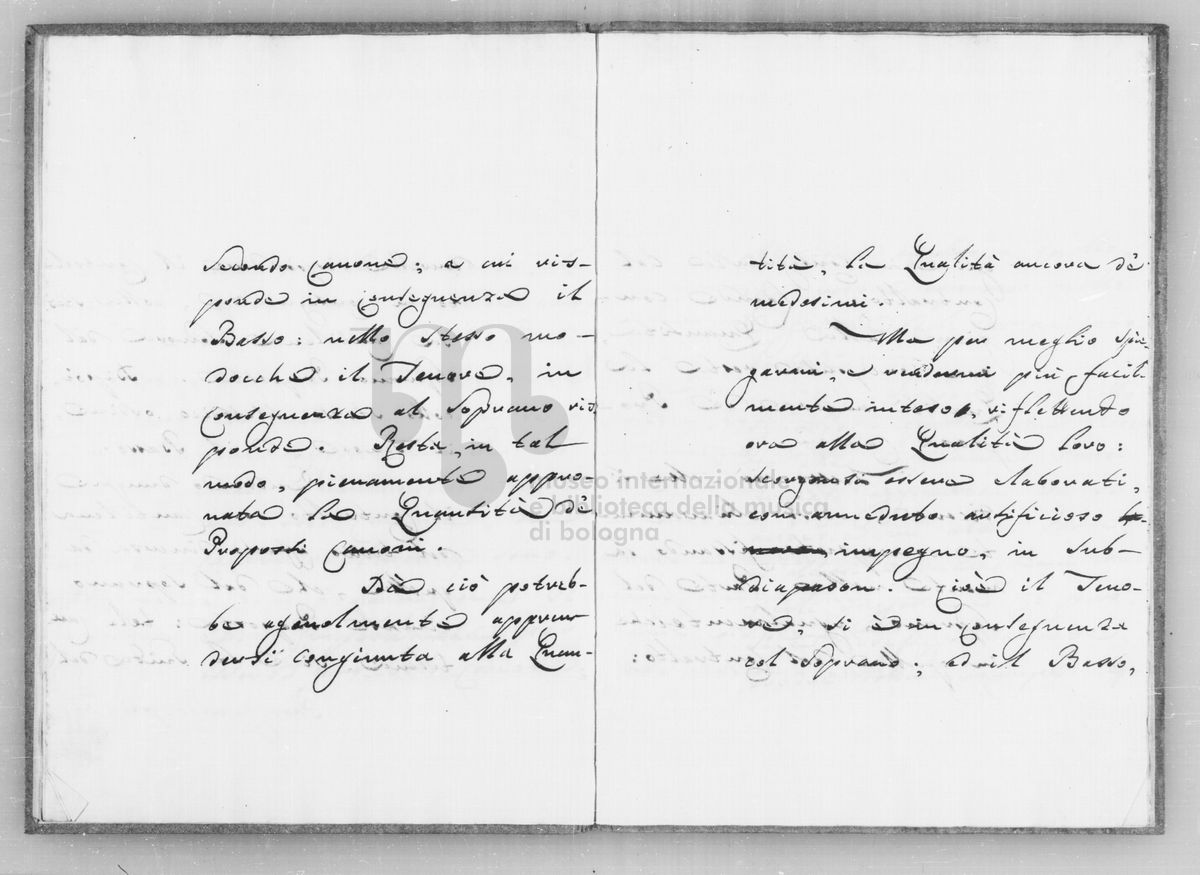 Secondo Canone; a cui ris-
ponde in Conseguenza il
Basso: nello stesso mo-
docche il Tenore, in
Conseguenza al Soprano ris
ponde. Resta in tal
modo, pienamente appro-
vata la Quantità dè
Proposti Canoni.
Dà ciò potreb-
be agevolmente appren-
dersi congiunta alla Quan-
tità, la Qualità ancora dè
medesimi.
Ma per meglio spie-
garmi, e rendermi più facil
mente inteso, riflettendo
ora alla Qualità loro:
essere elaborati,
con avveduto artificioso
impegno, in Sub-
diapason. Cioè il Teno-
re, si è in Conseguenza
col Soprano; ed il Basso,
museo internazionale
e biblioteca della musica
di bologna